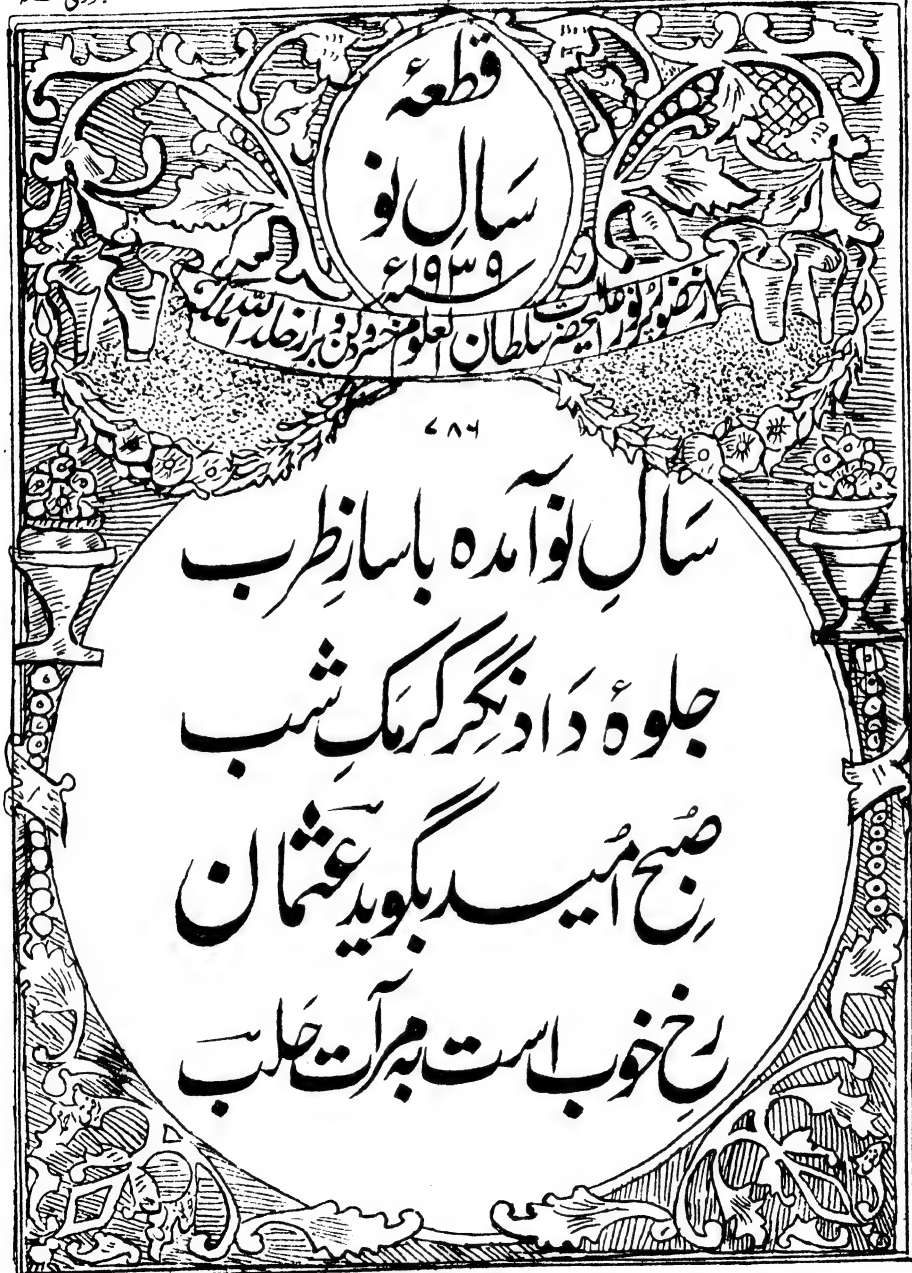 قطعۂ
سَالِ نو
۱۹۳۹ء
از حضور پُرنور اعلیٰحضرت سلطان العلوم خسرو دکن و برار خلد اللہ ملکہ
۷۸۶
سَالِ نو آمدہ با سازِ طرب
جلوۂ دَاد نِگر کرمَکِ شب
صُبحِ اُمید بگوید عثمان
رخِ خوب است بہ مرآتِ حَلب